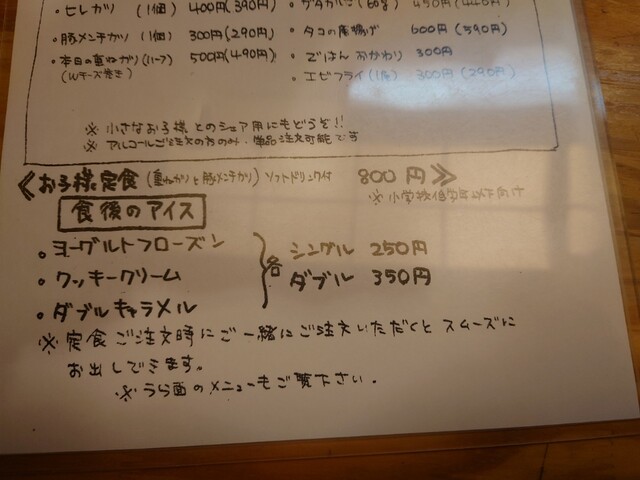 ・ヒレカツ (1個) 400円(390円)
・豚メンチカツ (1個) 300円(290円)
・本日の重ねカツ(ハーフ) 500円(490円)
(Wチーズ巻き)
450円(440円)
・タコの唐揚げ 600円(590円)
・ごはんおかわり 300円
・エビフライ(1尾) 300円(290円)
※ 小さなお子様とのシェア用にもどうぞ!!
※ アルコールご注文の方のみ、単品注文可能です
≪お子様定食 (重ねカツと豚メンチカツ) ソフトドリンク付 800円≫
※小学校低学年以下向け
食後のアイス
・ヨーグルトフローズン
・クッキークリーム
・ダブルキャラメル
各 シングル 250円
ダブル 350円
※定食ご注文時にご一緒にご注文いただくとスムーズに
お出しできます。
※うら面のメニューもご覧下さい.